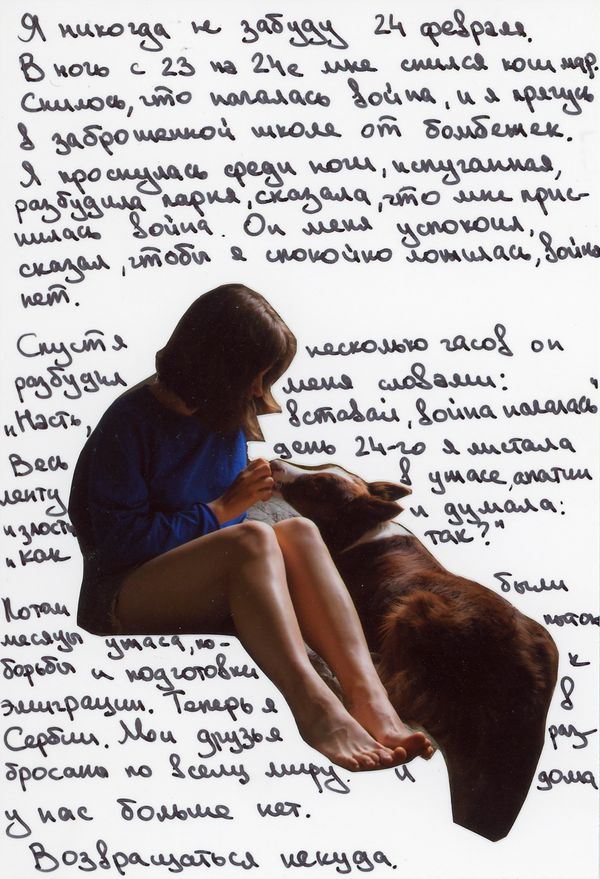 Я никогда не забуду 24 февраля.
В ночь с 23 на 24е мне снился кошмар.
Снилось, что началась война, и я прячусь
в заброшенной школе от бомбежек.
Я проснулась среди ночи, испуганная,
разбудила парня, сказала, что мне прис-
нилась война. Он меня успокоил,
сказал, чтобы я спокойно ложилась, войны
нет.
Спустя несколько часов он
разбудил меня словами:
„Насть, вставай, война началась"
Весь день 24-го я листала
ленту в ужасе, апатии
и злости и думала:
„как так?"
Потом были
месяцы ужаса, по- пыток
борьбы и подготовки к
эмиграции. Теперь я в
Сербии. Мои друзья раз-
бросаны по всему миру. и дома
у нас больше нет.
Возвращаться некуда.